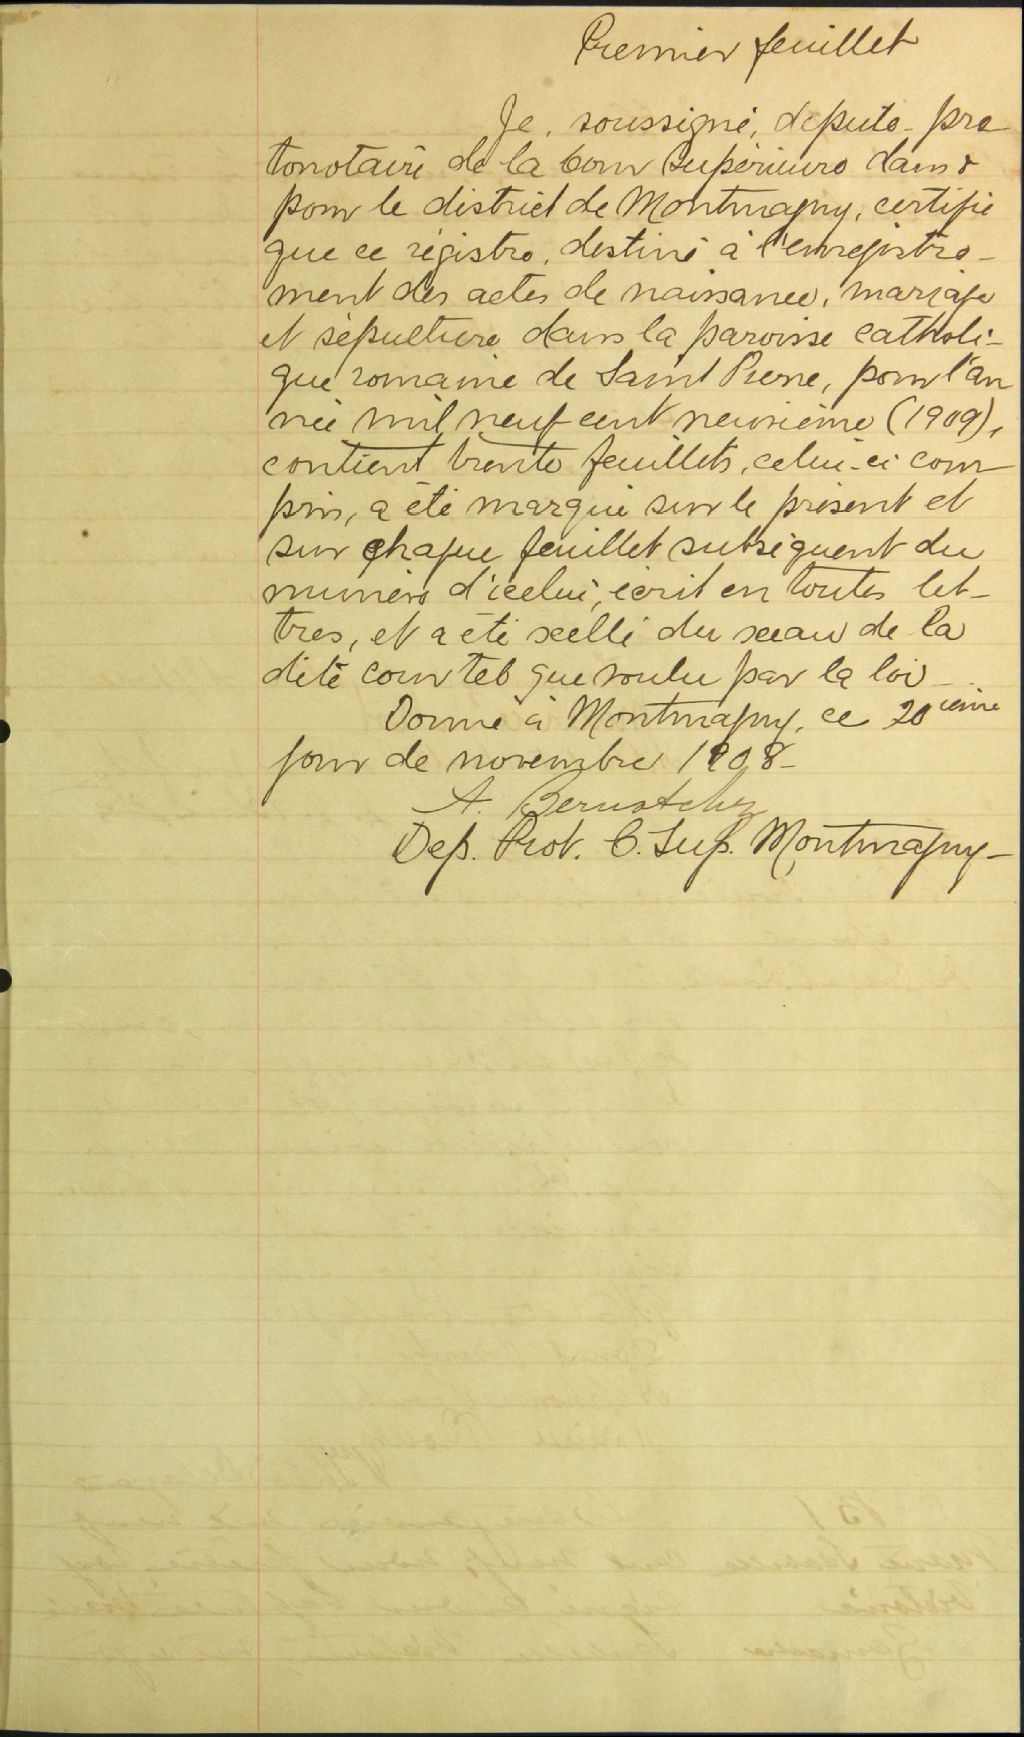 Premier feuillet
Je, soussigné, député-pro
tonotaire de la Cour Supérieure dans &
pour le district de Montmagny, certifie
que ce régistre, destiné à l'enregistre-
ment des actes de naissance, mariage
et sépulture dans la paroisse catholi-
que romaine de Saint Pierre, pour l'an
née mil neuf cent neuvième (1909),
contient trente feuillets, celui-ci com-
pris, a été marqué sur le présent et
sur chaque feuillet subséquent du
numéro d'icelui, écrit en toutes let-
tres, et a été scellé du sceau de la
dite cour tel que voulu par la loi -
Donné à Montmagny, ce 20ième
jour de novembre 1908 -
A. Bernatchez
Dep. Prot. C. Sup. Montmagny -